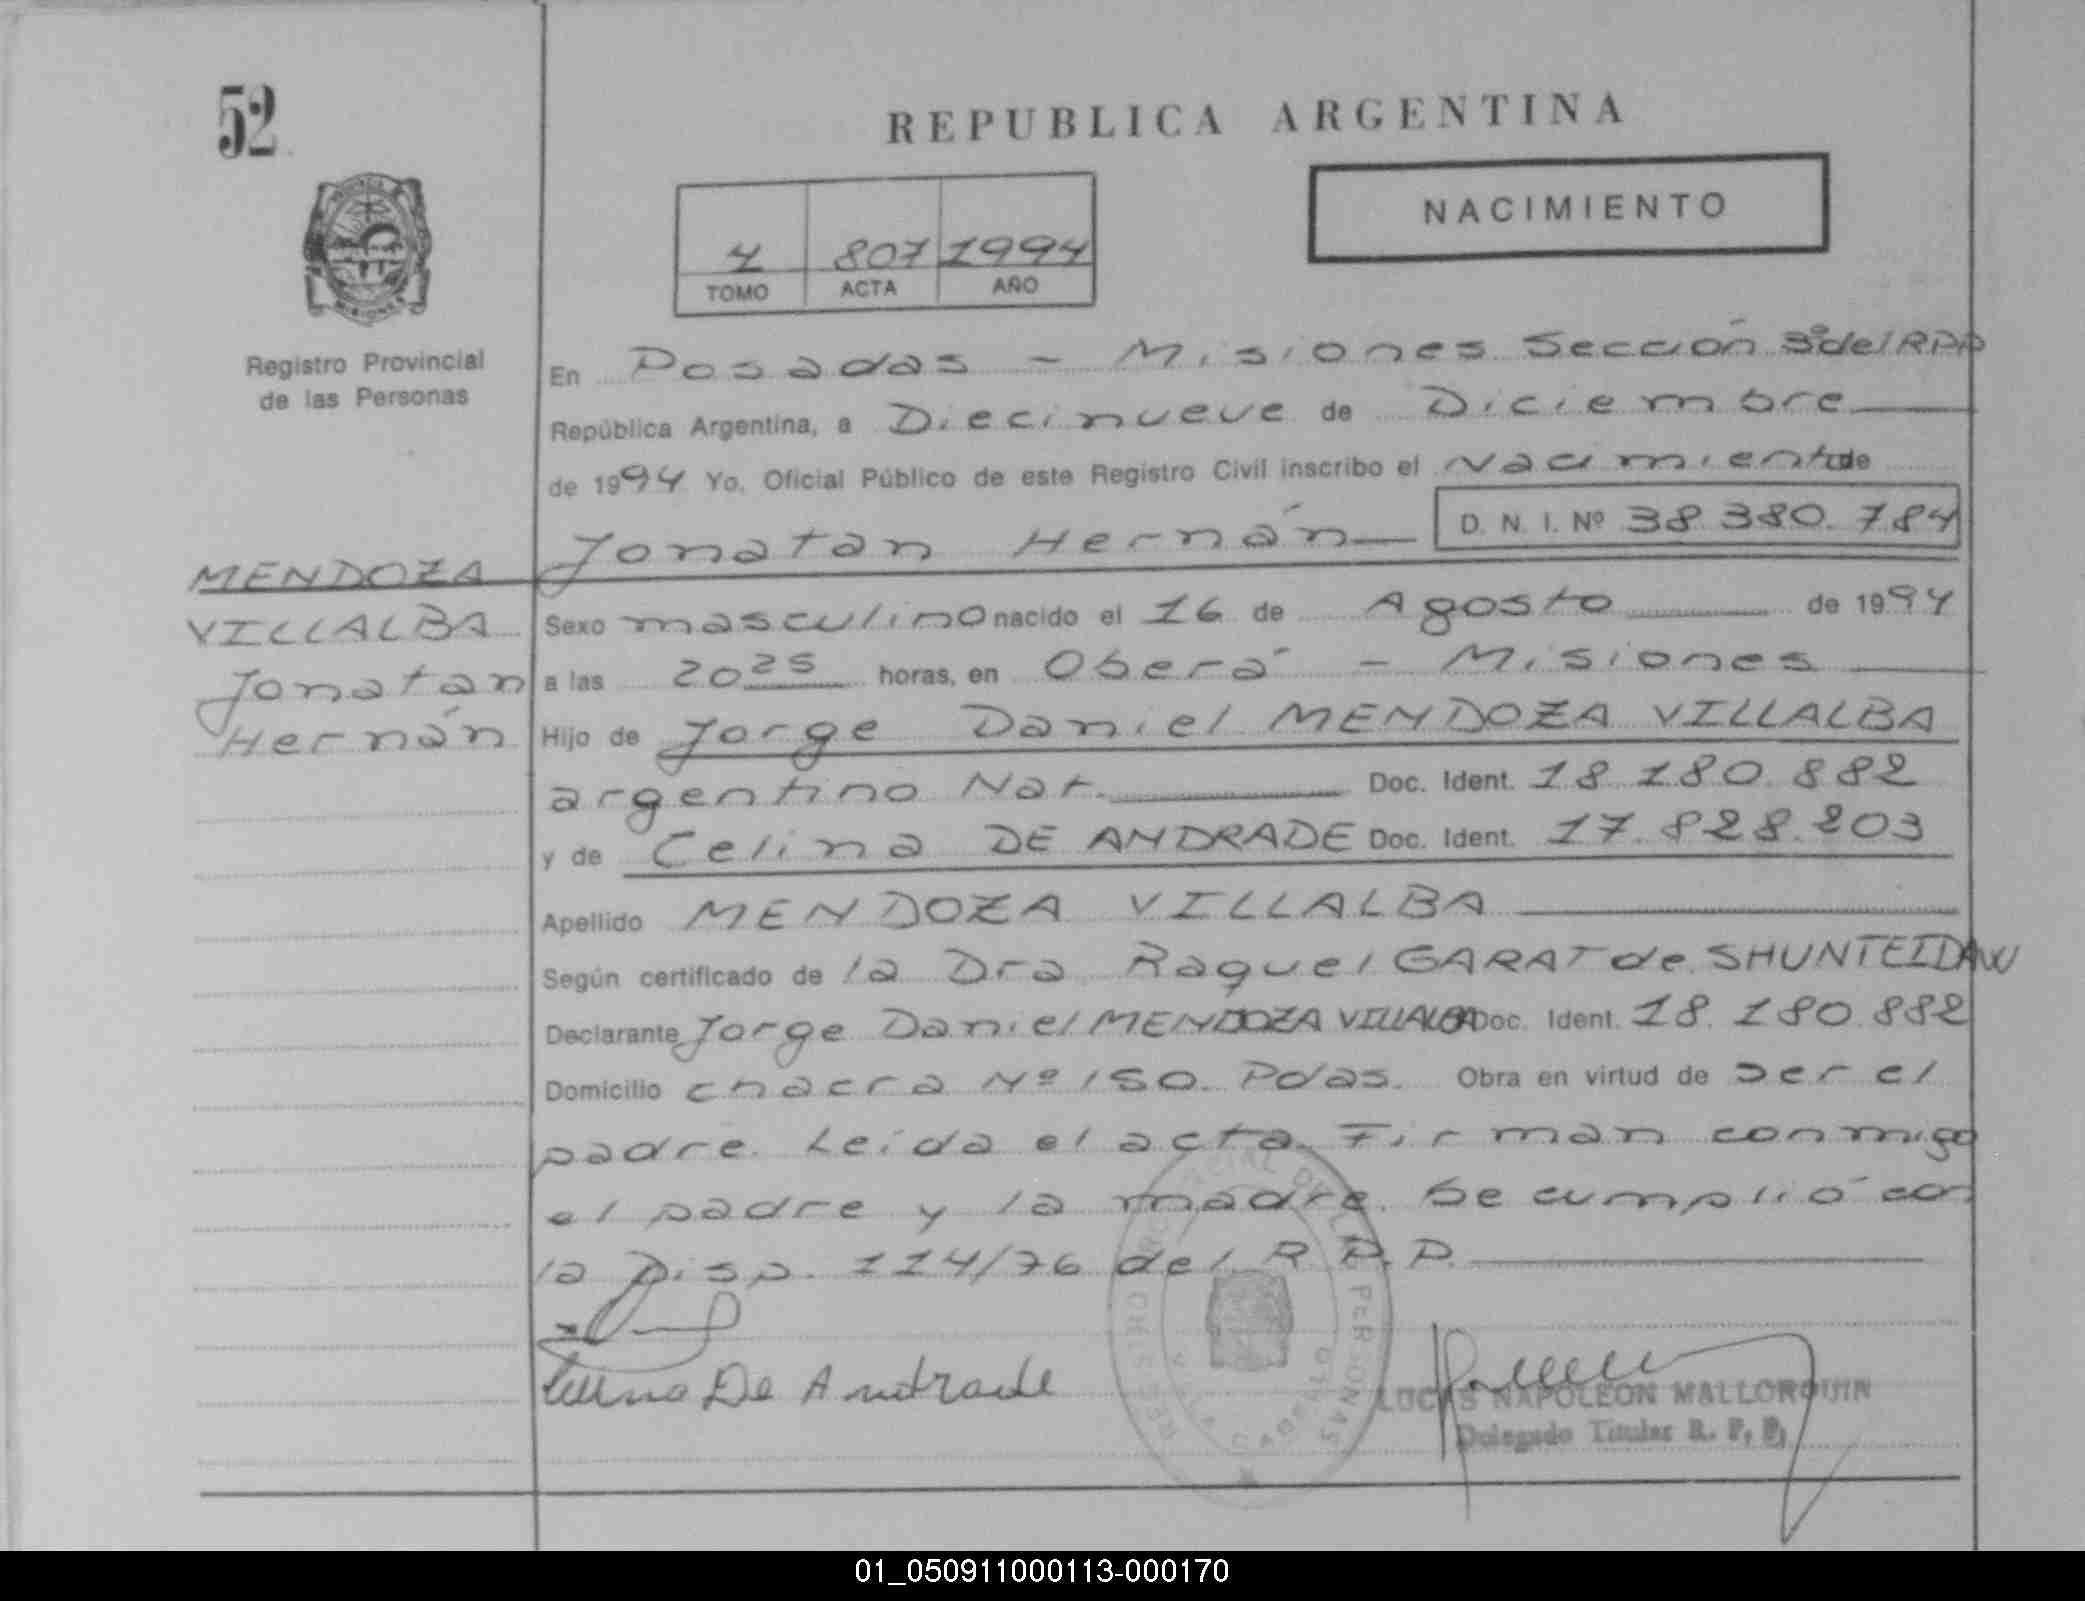 52
REPUBLICA ARGENTINA
NACIMIENTO
4 807 1994
TOMO ACTA AÑO
Registro Provincial
de las Personas
En Posadas - Misiones Sección 3º del RPP
República Argentina, a Diecinueve de Diciembre
de 1994 Yo. Oficial Público de este Registro Civil inscribo el Nacimiento de
Jonatan Hernán D. N. I. Nº 38.380.784
MENDOZA
VILLALBA
Jonatan
Hernán
Sexo masculino nacido el 16 de Agosto de 1994
a las 20 25 horas, en Oberá - Misiones
Hijo de Jorge Daniel MENDOZA VILLALBA
argentino Nat. Doc. Ident. 18.180.882
y de Celina DE ANDRADE Doc. Ident. 17.828.203
Apellido MENDOZA VILLALBA
Según certificado de la Dra Raquel GARAT de SHUNTEIDAW
Declarante Jorge Daniel MENDOZA VILLALBA Doc. Ident. 18.180.882
Domicilio chacra Nº 150. Pdas. Obra en virtud de ser el
padre. Leída el acta. Firman conmigo
el padre y la madre. Se cumplió con
la Disp. 114/76 del R.P.P.
Celina De Andrade
REGISTRO PROVINCIAL DE LAS PERSONAS
LUCAS NAPOLEON MALLORQUIN
Delegado Titular R. P. P.
01_050911000113-000170